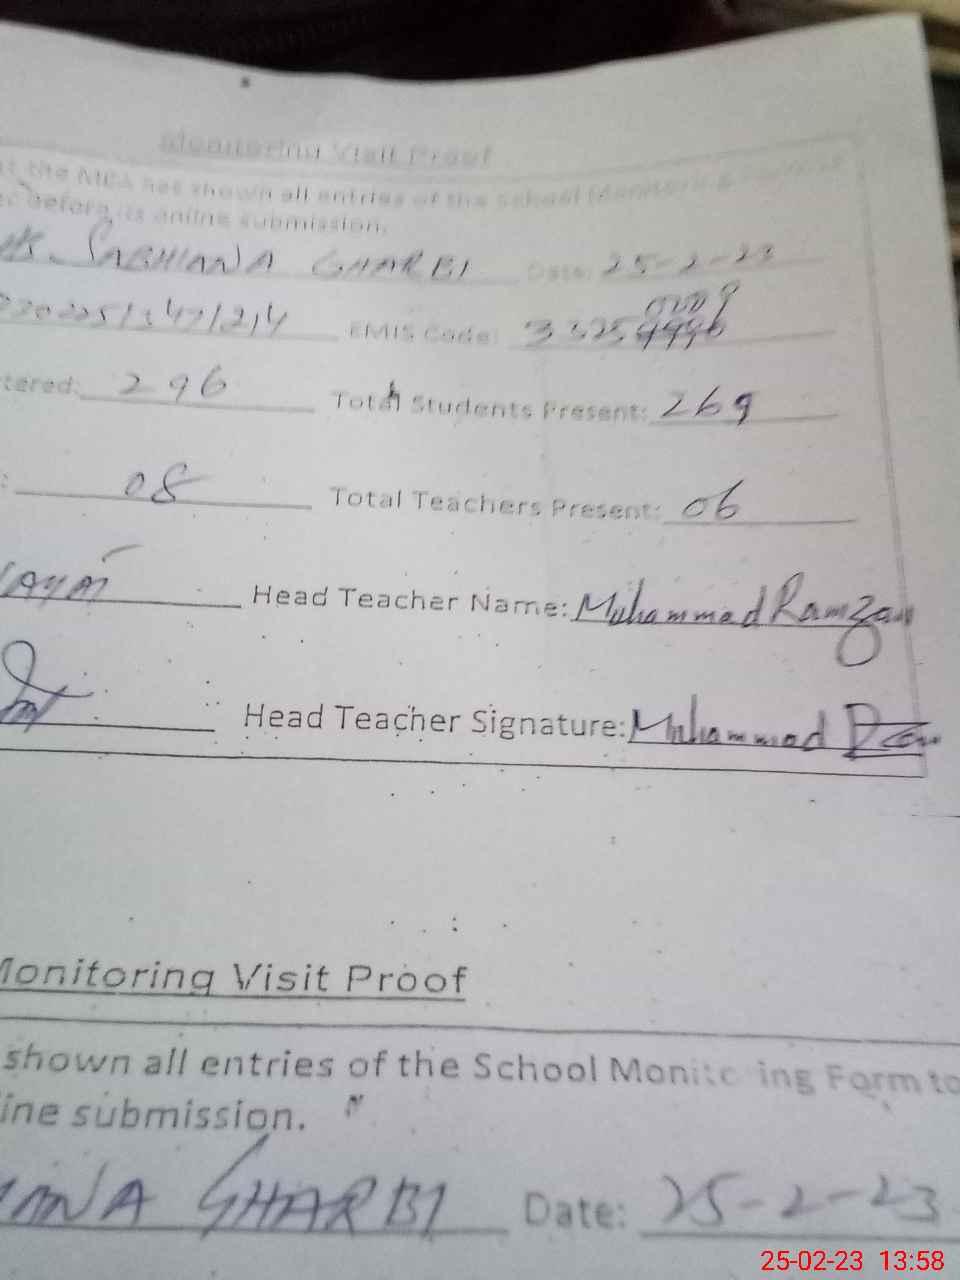 Monitoring Visit Proof
the MEA has shown all entries of the School
before its online submission.
SABHIANA GHARBI Date: 25-2-23
EMIS Code: 33254446 0009
tered: 296 Total Students Present: 269
: 08 Total Teachers Present: 06
Head Teacher Name: Muhammad Ramzan
Head Teacher Signature: Muhammad
Monitoring Visit Proof
shown all entries of the School Monitoring Form to
ine submission.
IANA GHARBI Date: 25-2-23
25-02-23 13:58